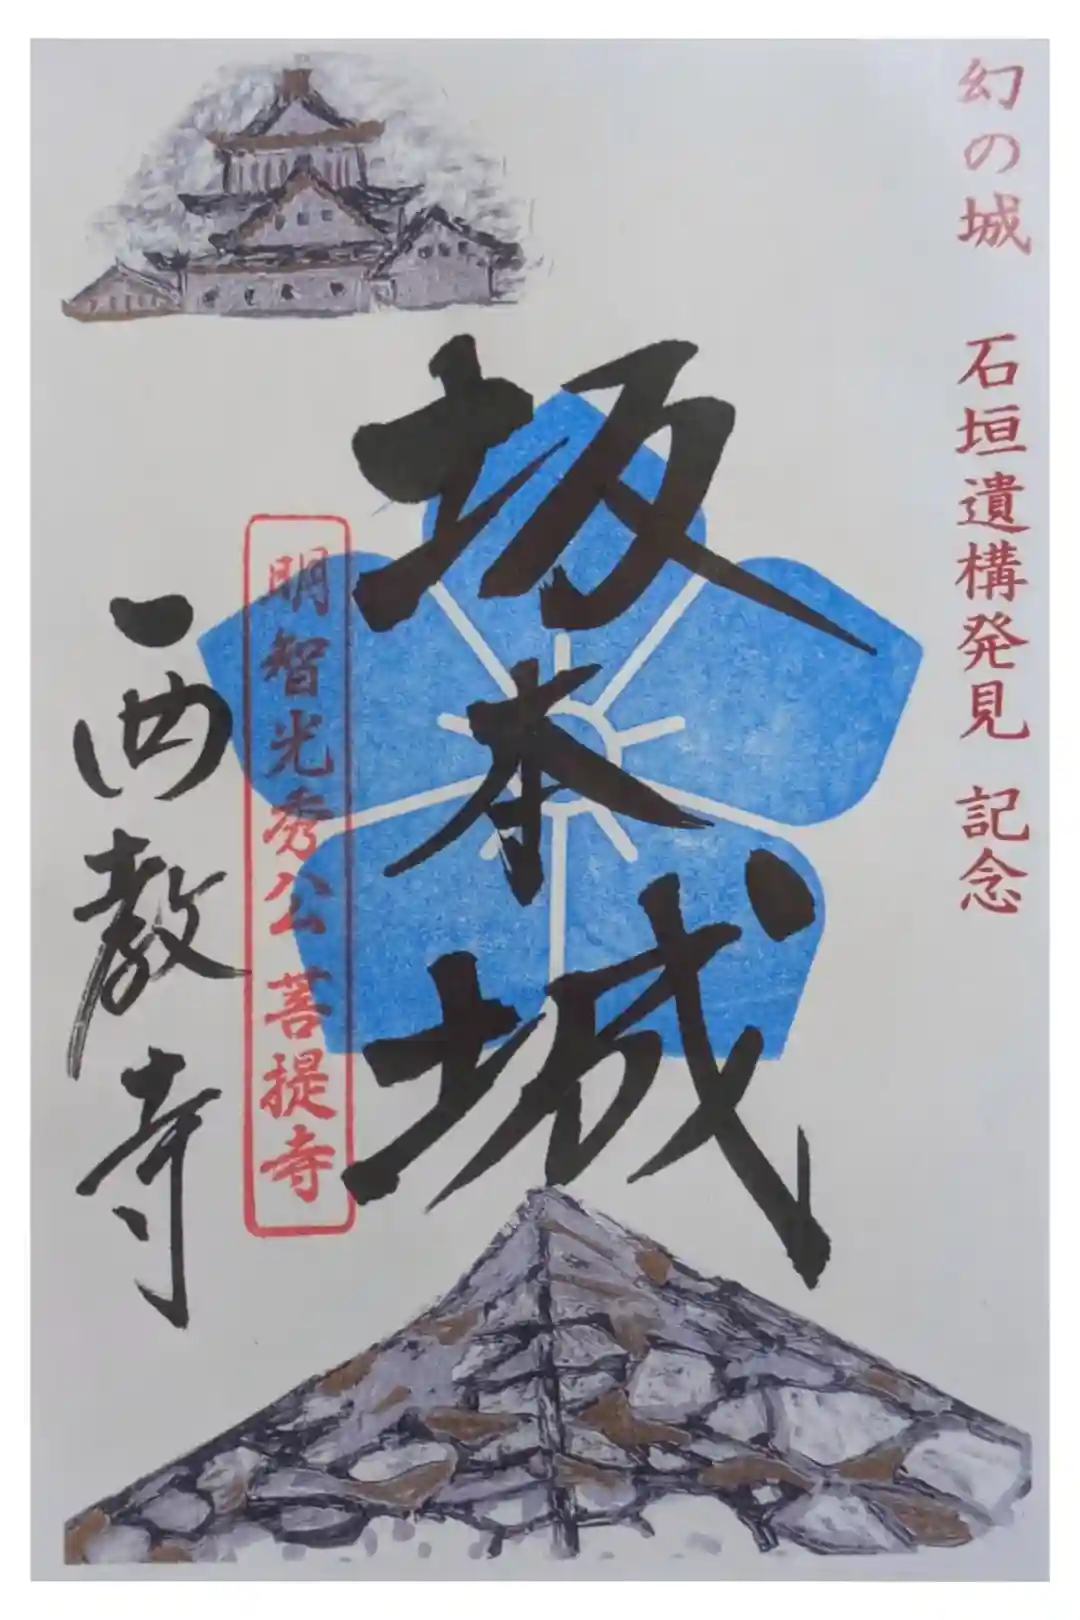 幻の城　石垣遺構発見 記念
坂本城
明智光秀公 菩提寺
西教寺